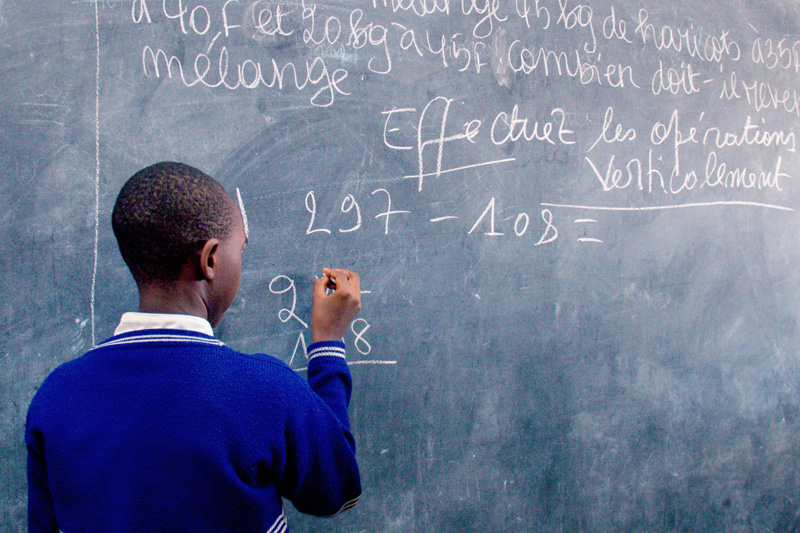 à 40F et 20kg à 45F. combien doit-il
mélange 45kg de haricots à 35F
mélange.
Effectuez les opérations
verticalement
297 - 108 =
2
1 8